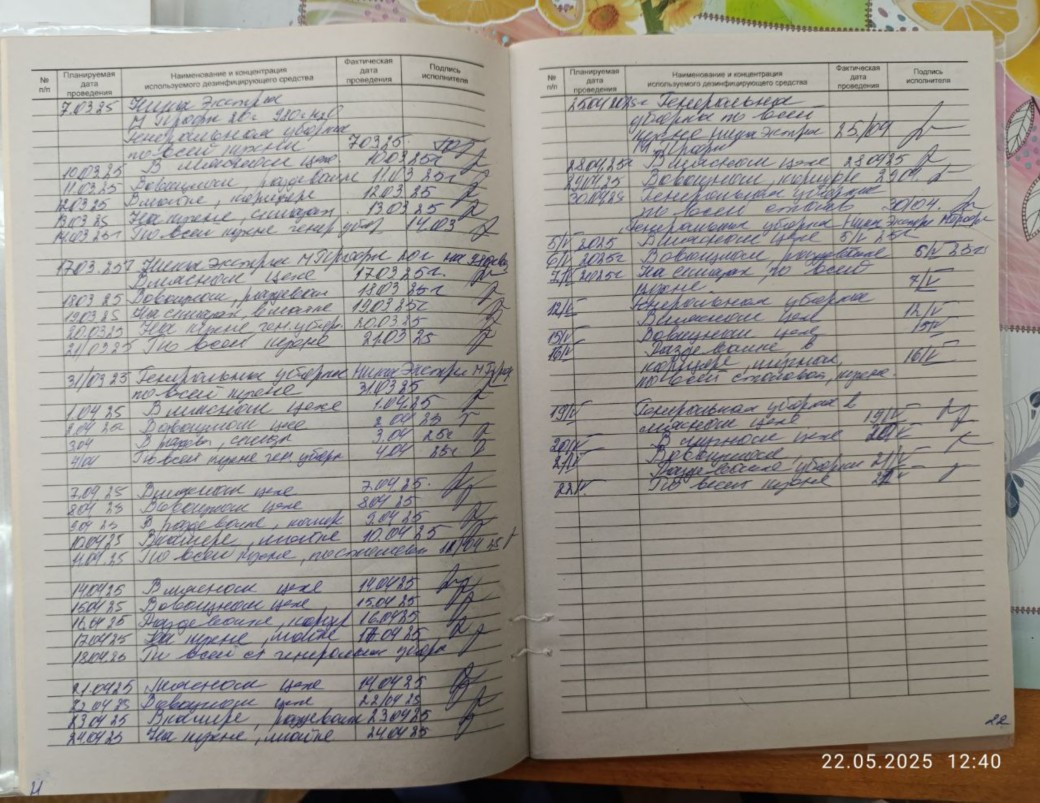 № п/п
Планируемая дата проведения
Наименование и концентрация используемого дезинфицирующего средства
Фактическая дата проведения
Подпись исполнителя
7.03.25 Ника Экстра
М Профи 20г
Генеральная уборка
по всей кухни 7.03.25.
10.03.25 В мясном цехе 10.03.25г
11.03.25 В овощном, раздевалке 11.03.25г
12.03.25 В мойке, коридоре 12.03.25
13.03.25 На кухне, складах 13.03.25
14.03.25г По всей кухне генер. убор. 14.03
17.03.25г Ника Экстра М Профи 20г на
В мясном цехе 17.03.25г.
18.03.25 В овощном, раздевалк 18.03.25г
19.03.25 На складах, в мойке 19.03.25г
20.03.25 На кухне ген. убор. 20.03.25
21/03.25 По всей кухне 21.03.25
31/03.25 Генеральная уборка Ника Экстра М Профи
по всей кухне 31.03.25
1.04.25 В мясном цехе 1.04.25
2.04.25 В овощном цехе 2.04.25
3.04 В раздев, склад 3.04 25г
4/04 По всей кухне ген. уборк 4.04 25г
7.04.25 В мясном цехе 7.04.25.
8.04.25 В овощном цехе 8.04.25
9.04.25 В раздевалке, коридор 9.04.25
10.04.25 В коридоре, мойке 10.04.25
По всей кухне,
14.04.25 В мясном цехе 14.04.25
15.04.25 В овощном цехе 15.04.25
16.04.25 Раздевалке, корид 16.04.25
17.04.25 На кухне, мойке 17.04.25
18.04.25 По всей ст генеральная уборк
21.04.25 Мясном цехе
22.04.25 В овощном цехе 22/04.25
23.04.25 раздевалк 23.04.25
24.04.25 На кухне, мойке 24.04.25
21
№ п/п
Планируемая дата проведения
Наименование и концентрация используемого дезинфицирующего средства
Фактическая дата проведения
Подпись исполнителя
25.04.2025г Генеральная
уборка по всей
кухне Ника Экстра 25/04
М Профи
28.04.25г В мясном цехе 28.04.25
29.04.25 В овощном, коридоре 29.04.
30.04.25 Генеральная уборка
по всей столов 30/04.
Генеральная уборка Ника Экстра М Профи
5/V 2025 В мясном цехе 5/V 25г
6/V 2025г В овощном, раздевалке 6/V 25г
7/V 2025г На складах, по всей
кухне 7/V
12/V Генеральная уборка
В мясном цехе 12/V
15/V В овощном цехе 15/V
16/V Раздевалке в
коридоре,
по всей столовой, кухне. 16/V
19/V Генеральная уборка в
мясном цехе 19/V
20/V В мучном цехе 20/V
21/V В овощном
Раздевалке уборка 21/V
22/V По всей кухне 22
22
22.05.2025 12:40